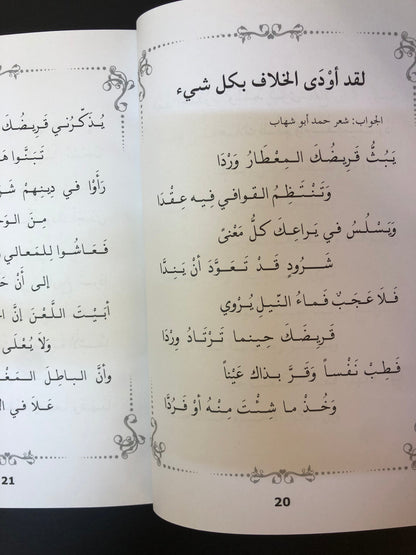 لقد أوْدَى الخلاف بكل شيء
الجواب: شعر حمد أبو شهاب
يَبُثُّ قَرِيضُكَ المِعْطَارُ وَرْدَا
وَتَنْتَظِمُ القوافي فيه عِقْدَا
وَيَسْلُسُ في يَراعِكَ كلُّ مَعْنىً
شَرُودٍ قَدْ تَعَوَّدَ أنْ يَنِدَّا
فَلا عَجَبٌ فَماءُ النّيلِ يُرْوي
قَرِيضَكَ حِينما تَرْتَادُ وِرْدَا
فَطِبْ نَفْساً وَقَرَّ بذاك عَيْناً
وَخُذْ ما شِئْتَ مِنْهُ أوْ فَرُدَّا
20
يُذَكِّرُني قَرِيضُكَ
تَبَنَّوا
رَأَوْا في دِينِهِمْ
مِنَ
فَعاشُوا لِلمَعالي
إلى أنْ
أبَيْتَ اللَّعْنَ إنَّ
وَلا يُعْلَى
وأنَّ الباطِلَ
عَلا في
21